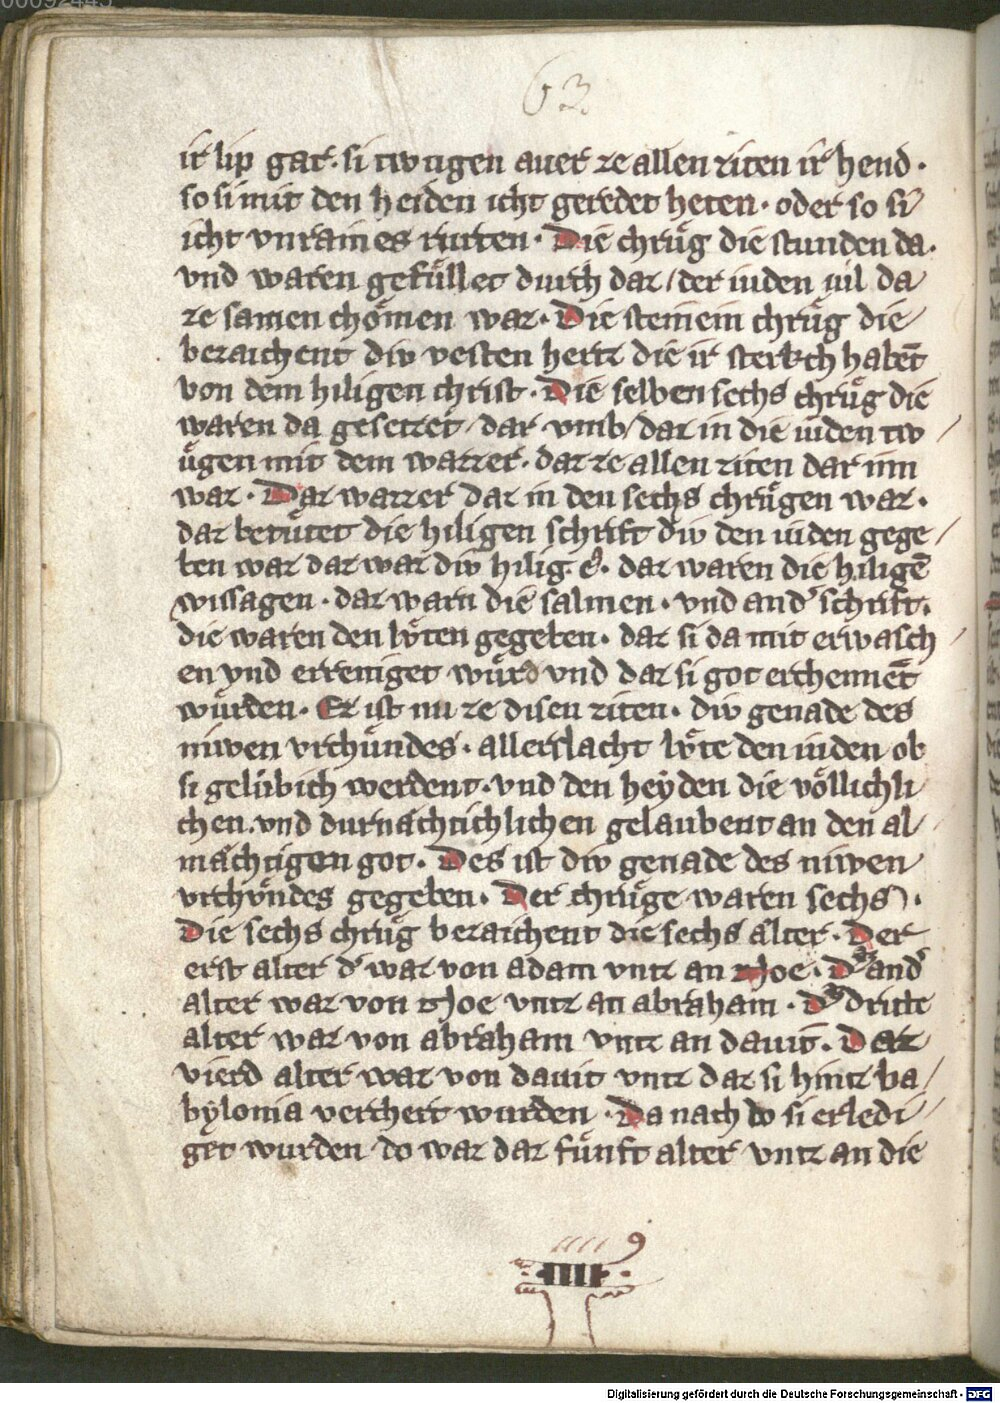 00092445
63
ir lip gar. si twugen auer ze allen ziten ir hend.
so si mit den heiden icht geredet heten. oder so si
icht vnraines rurten. Die chrůg die stunden da.
vnd waren gefüllet durch daz/der iuden uil da
ze samen chömen waz. Die steinein chrůg die
bezaichent div vesten hertz die ir sterkch habēt
von dem hiligen christ. Die selben sechs chrůg die
waren da gesetzet/dar vmb/daz in die iuden tw/
ůgen mit dem wazzer. daz ze allen ziten dar inn
waz. Daz wazzer daz in den sechs chrůgen waz.
daz betütet die hiligen schrift div den iuden gege/
ben waz daz waz div hilig e. daz waren die hiligē
wissagen. daz warn die salmen. vnd and' schrift.
die waren den lvten gegeben. daz si da mit erwasch/
en vnd erreniget würd vnd daz si got erchennēt
würden. Ez ist nu ze disen ziten. div genade des
niwen vrchündes. allerslacht lvte den iuden ob
si gelübich werdent. vnd den heyden die völlichli
chen. vnd durnächtichlichen gelaubent an den al/
mächtigen got. Des ist div genade des niwen
vrchvndes gegeben. Der chrůge waren sechs.
Die sechs chrůg bezaichent die sechs alter. Der
erst alter d' waz von adam vntz an Noe. D' and'
alter waz von Noe vntz an abraham. D' dritte
alter waz von abraham vntz an dauit. Daz
vierd alter waz von dauit vntz daz si hintz ba/
bylonia verchert wurden. Da nach do si erledi/
get wurden do waz daz fünft alter vntz an die
IIII
Digitalisierung gefördert durch die Deutsche Forschungsgemeinschaft - DFG